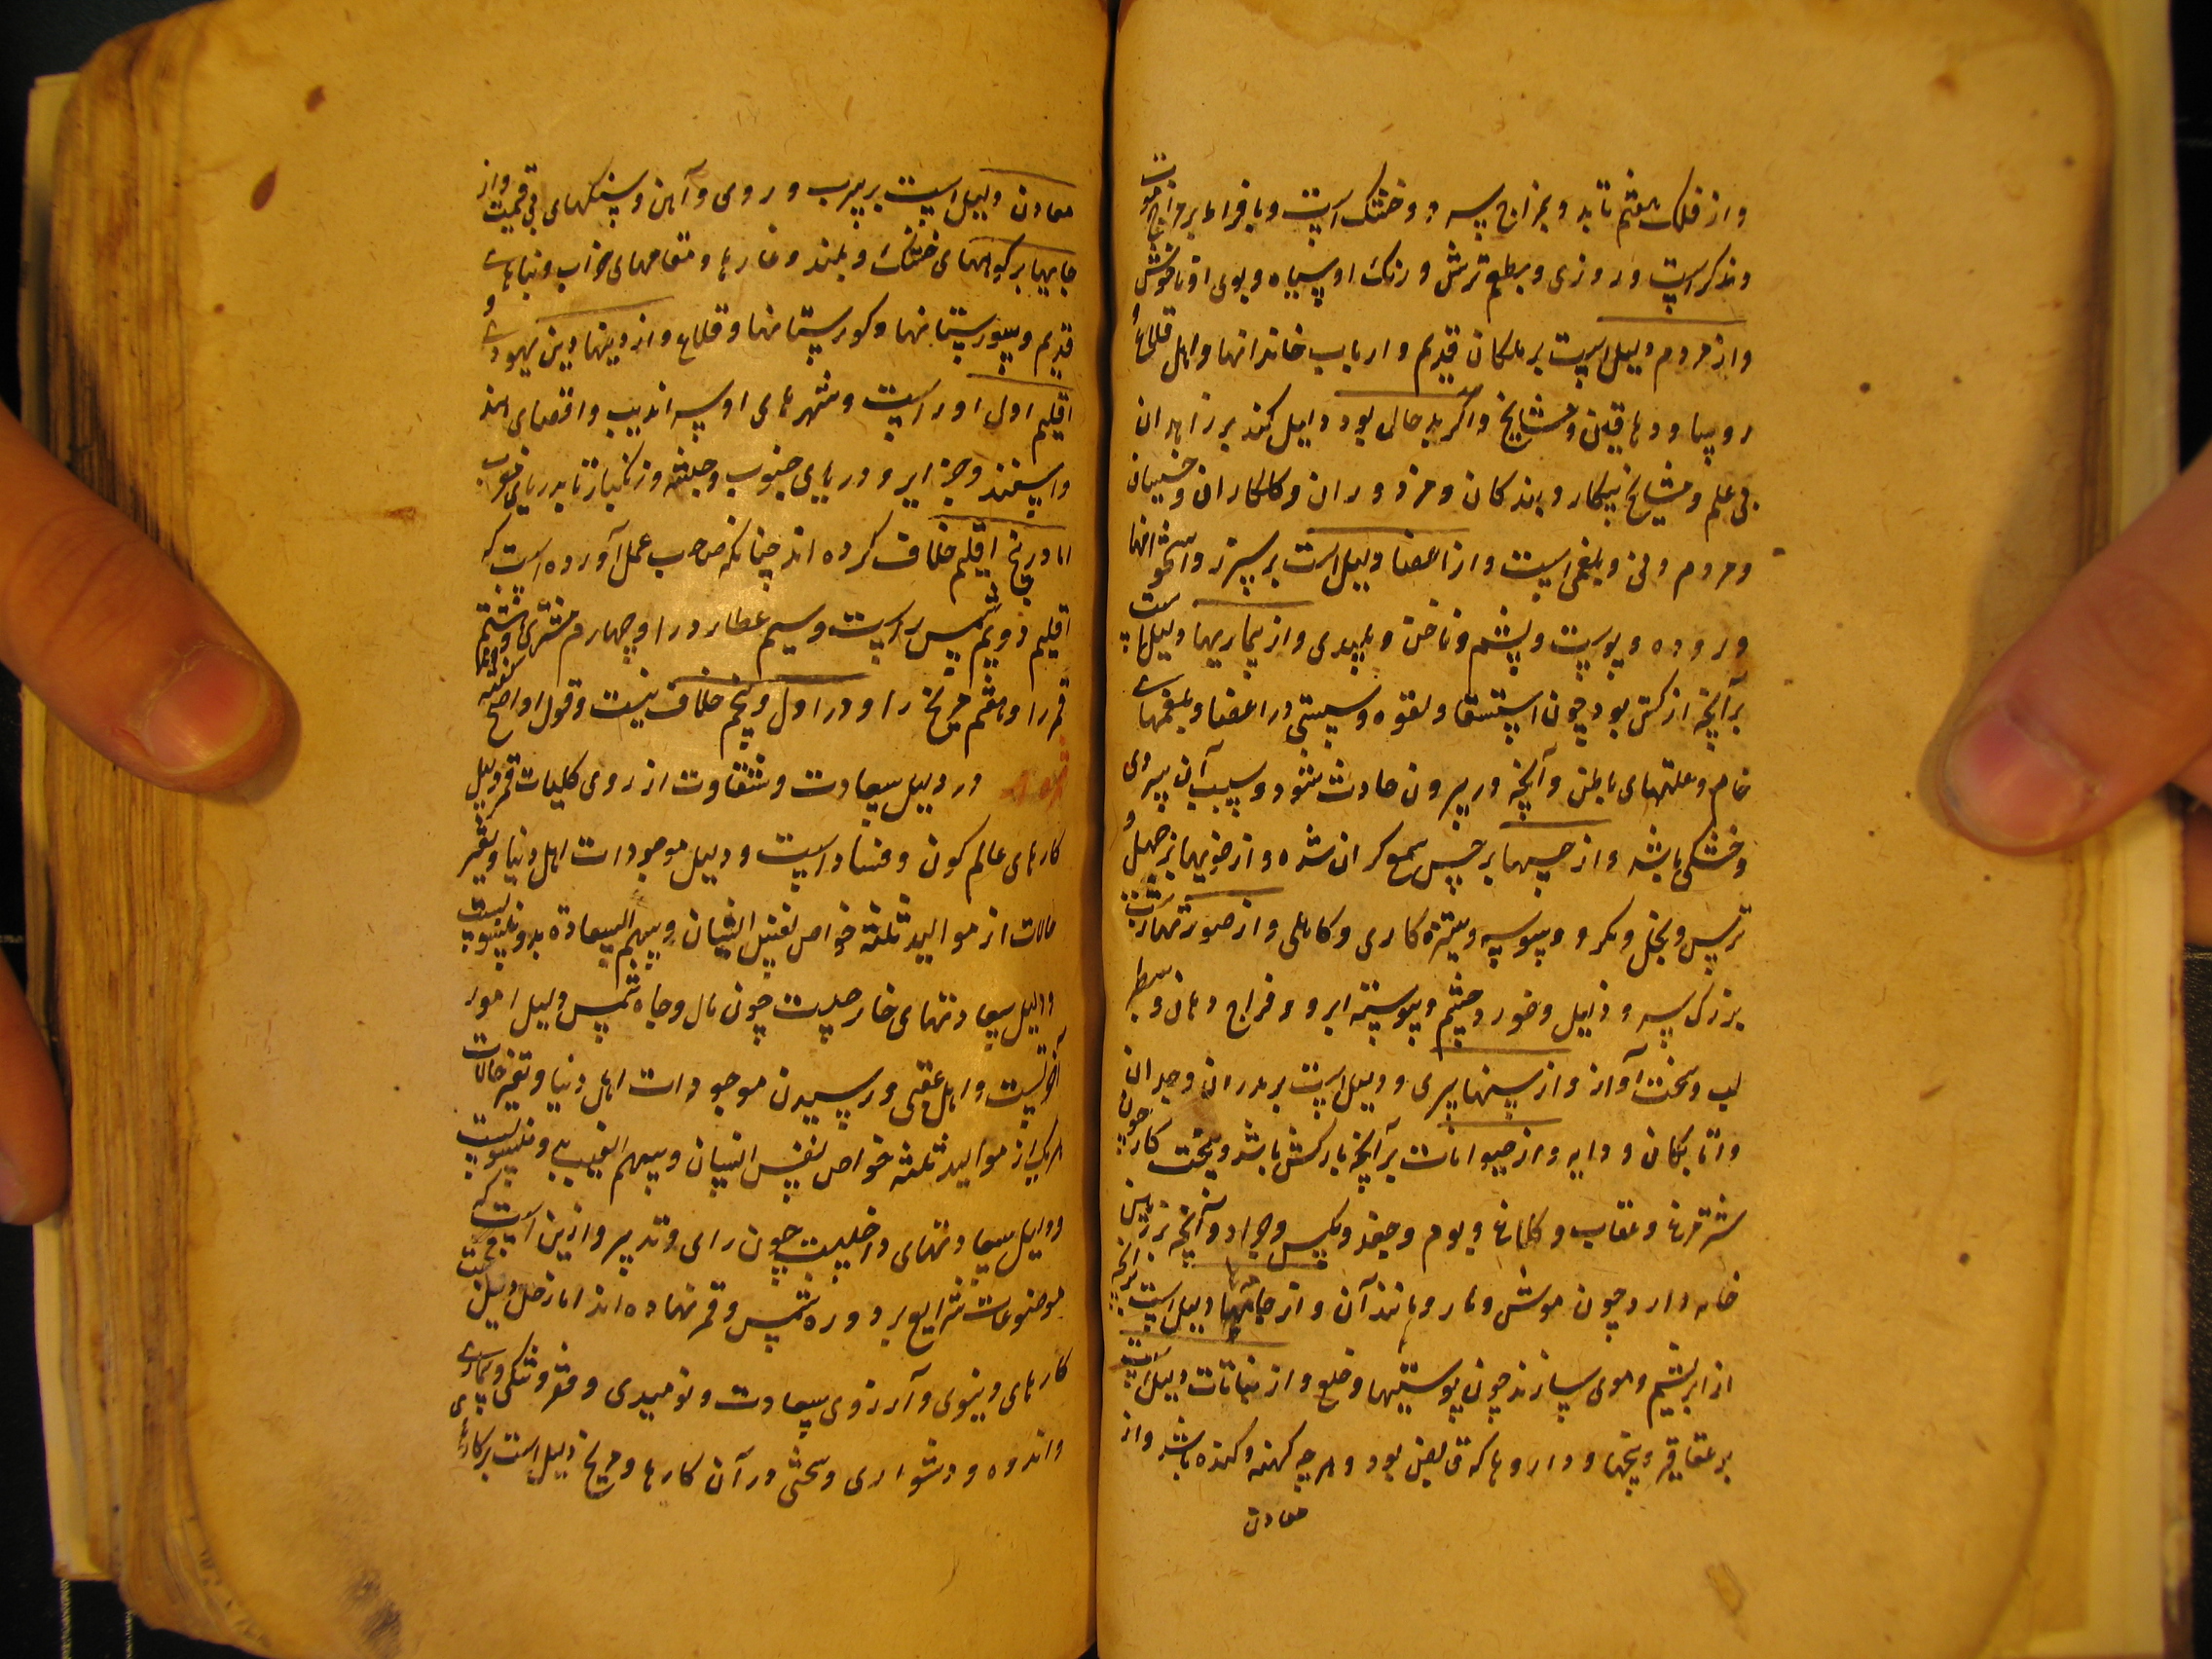 و از فلک هفتم تابد و بمزاج سرد و خشک است و بافراط بر مزاج موت
و مذکر است و روزی و بطعم ترش و رنک او سیاه و بوی او ناخوش
و از مردم دلیل است بر ملکان قدیم و ارباب خاندانها و اهل قلاع و
روسا و دهاقین و مشایخ و اگر بد حالی بود دلیل کند بر زاهدان
بی علم و مشایخ بیکار و بندکان و مزدوران و کاه کاران و خسیسان
و مردم دنی و بلغمی است و از اعضا دلیل است بر سپرز و استخوانها
و روده و پوست و پشم و ناخن و پلیدی و از بیماریها دلیل است
بر آنچه از کش بود چون استسقا و لقوه و سستی در اعضا و بلغمهای
خام و علتهای باطن و آنچه در بیرون حادث شود و سبب آن سردی
و خشکی باشد و از حسها بر حس سمع کران شده و از خویها بر جهل و
ترس و بخل و مکر و وسوسه و ستیزه کاری و کاهلی و از صورتها
بزرک سر و ذبیل و خورد چشم و پیوسته ابرو و فراخ دهان و سطبر
لب و سخت آواز و از سنها پیری و دلیل است بر پدران و جدان
و اتابکان و دایه و از حیوانات بر آنچه بارکش باشد و سخت کار چون
شتر مرغ و عقاب و کلاغ و بوم و جغد و مکس و جراد و آنچه بزیر زمین
خانه دارد چون موش و مار و مانند آن و از جامها دلیل است بر آنچه
از ابریشم و موی سازند چون پوستینها و خلع و از نباتات دلیل است
بر عقاقیر و بیخها و داروها که قابض بود و هر چه کهنه و کنده باشد و از
معادن
معادن دلیل است بر سرب و روی و آهن و سنکهای بی قیمت و از
جایها بر کوههای خشک و بلند و غارها و مقامهای خراب و بناهای
قدیم و ستورستانها و کورستانها و قلاع و از دینها دین یهودی و
اقلیم اول او راست و شهرهای او سراندیب و اقصای هند
و اسفند و جزایر و دریای جنوب و حبشه و زنکبار تا بدریای مغرب
اما در پنج اقلیم خلاف کرده اند چنانکه صاحب عمل آورده است که
اقلیم دویم شمس راست و سیم عطارد را و چهارم مشتری و ششم
قمر را و هفتم مریخ را و در اول و پنجم خلاف نیست و قول او اصح
در دلیل سعادت و شقاوت از روی کلیات قمر دلیل
کارهای عالم کون و فساد است و دلیل موجودات اهل دنیا و تغیر
حالات از موالید ثلثه خواص نفس انسان و سهم السعادة بدو منسوبست
و دلیل سعادتهای خارجیست چون مال و جاه شمس دلیل امور
آخرتست و اهل عقبی و رسیدن موجودات اهل دنیا و تغیر حالات
هر یک از موالید ثلثه خواص نفس انسان و سهم الغیب بدو منسوبست
و دلیل سعادتهای داخلیست چون رای و تدبیر و از این است که
موضوعات شرایع بر دوره شمس و قمر نهاده اند اما زحل دلیل
کارهای دنیوی و آرزوی سعادت و نومیدی و فقر و تنکی و بیماری
و اندوه و دشواری و سختی در آن کارها و مریخ دلیل است بر کارهای